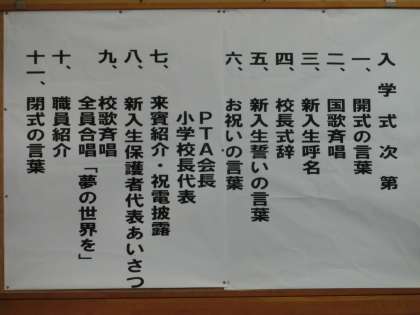 入学式次第
一、開式の言葉
二、国歌斉唱
三、新入生呼名
四、校長式辞
五、新入生誓いの言葉
六、お祝いの言葉
PTA会長
小学校長代表
七、来賓紹介・祝電披露
八、新入生保護者代表あいさつ
九、校歌斉唱
全員合唱「夢の世界を」
十、職員紹介
十一、閉式の言葉